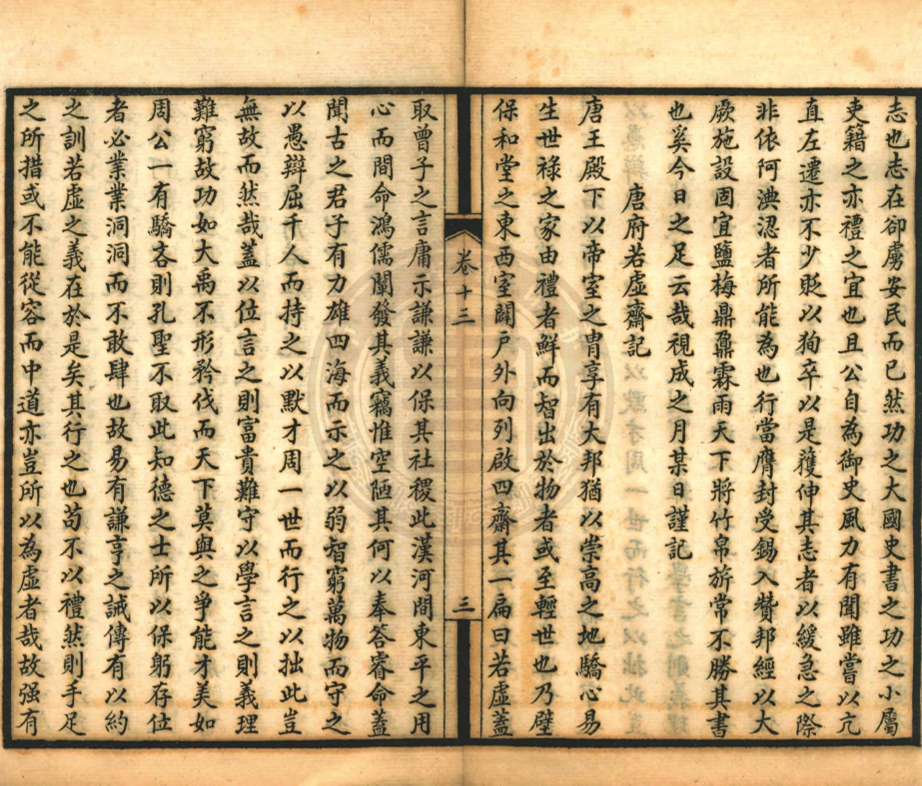 志也志在卻虜安民而已然功之大國史書之功之小屬
吏籍之亦禮之宜也且公自為御史風力有聞雖嘗以亢
直左遷亦不少貶以狥卒以是獲伸其志者以緩急之際
非依阿淟涊者所能為也行當膺封受錫入贊邦經以大
厥施設固宜鹽梅鼎鼐霖雨天下將竹帛旂常不勝其書
也奚今日之足云哉視成之月某日謹記
唐府若虛齋記
唐王殿下以帝室之胄享有大邦猶以崇高之地驕心易
生世祿之家由禮者鮮而智出於物者或至輕世也乃壁
保和堂之東西室闢戶外向列啟四齋其一扁曰若虛蓋
卷十三
三
取曾子之言庸示謙謙以保其社稷此漢河間東平之用
心而間命鴻儒闡發其義竊惟空陋其何以奉答睿命蓋
聞古之君子有力雄四海而示之以弱智窮萬物而守之
以愚辯屈千人而持之以默才周一世而行之以拙此豈
無故而然哉蓋以位言之則富貴難守以學言之則義理
難窮故功如大禹不形矜伐而天下莫與之爭能才美如
周公一有驕吝則孔聖不取此知德之士所以保躬存位
者必業業洞洞而不敢肆也故易有謙亨之誡傳有以約
之訓若虛之義在於是矣其行之也苟不以禮然則手足
之所措或不能從容而中道亦豈所以為虛者哉故强有